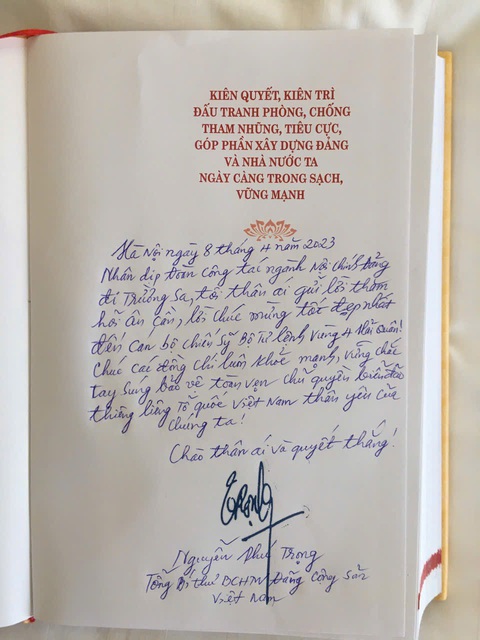 KIÊN QUYẾT, KIÊN TRÌ
ĐẤU TRANH PHÒNG, CHỐNG
THAM NHŨNG, TIÊU CỰC,
GÓP PHẦN XÂY DỰNG ĐẢNG
VÀ NHÀ NƯỚC TA
NGÀY CÀNG TRONG SẠCH,
VỮNG MẠNH
Hà Nội ngày 8 tháng 4 năm 2023
Nhân dịp đoàn công tác ngành Nội Chính Đảng
đi Trường Sa, tôi thân ái gửi lời thăm
hỏi ân cần, lời chúc mừng tốt đẹp nhất
đến cán bộ chiến sỹ Bộ Tư lệnh Vùng 4 Hải Quân!
Chúc các đồng chí luôn khỏe mạnh, vững chắc
tay súng bảo vệ toàn vẹn chủ quyền biển đảo
thiêng liêng Tổ quốc Việt Nam thân yêu của
chúng ta!
Chào thân ái và quyết thắng!
Trọng
Nguyễn Phú Trọng
Tổng Bí thư BCHTW Đảng Cộng sản
Việt Nam